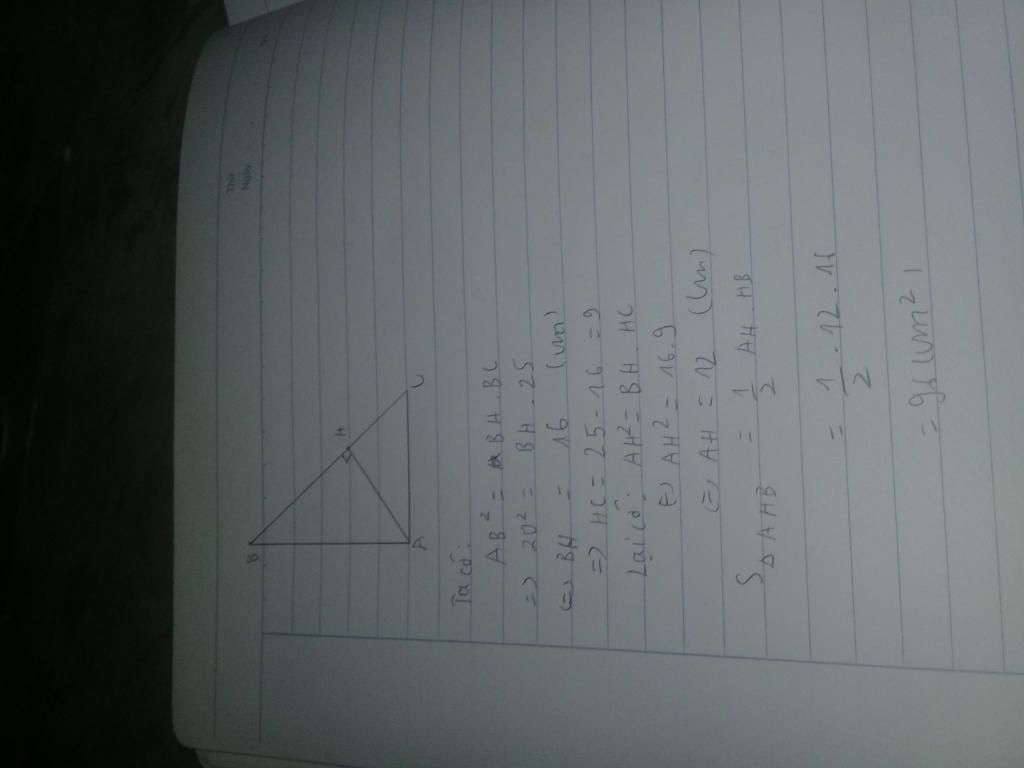 Thứ
Ngày
B
H
A
C
Ta có:
AB² = BH.BC
=> 20² = BH.25
<=> BH = 16 (cm)
=> HC = 25-16 = 9
Lại có: AH² = BH.HC
<=> AH² = 16.9
<=> AH = 12 (cm)
S△AHB = 1/2 AH.HB
= 1/2 .12.16
= 96 (cm²)